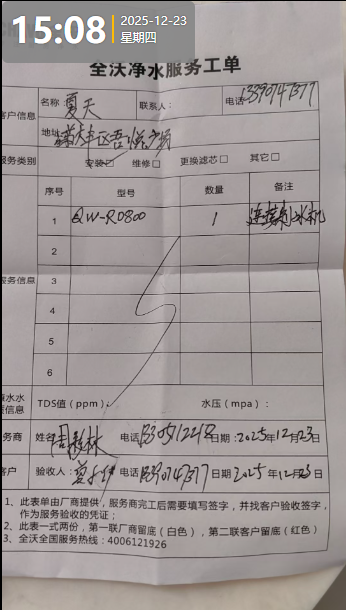 15:08
2025-12-23
星期四
全沃净水服务工单
客户信息 名称 夏天 联系人： 电话
地址
服务类别 安装☑ 维修□ 更换滤芯□ 其它□
序号 型号 数量 备注
1 QW-R0800 1 连接制冰机
2
服务信息 3
4
5
6
TDS值（ppm）： 水压（mpa）：
服务商 姓名 电话 日期：2025年12月23日
客户 验收人： 电话 日期 2025年12月23日
1、此表单由厂商提供，服务商完工后需要填写签字，并找客户验收签字，
作为服务验收的凭证；
2、此表一式两份，第一联厂商留底（白色），第二联客户留底（红色）
3、全沃全国服务热线：4006121926